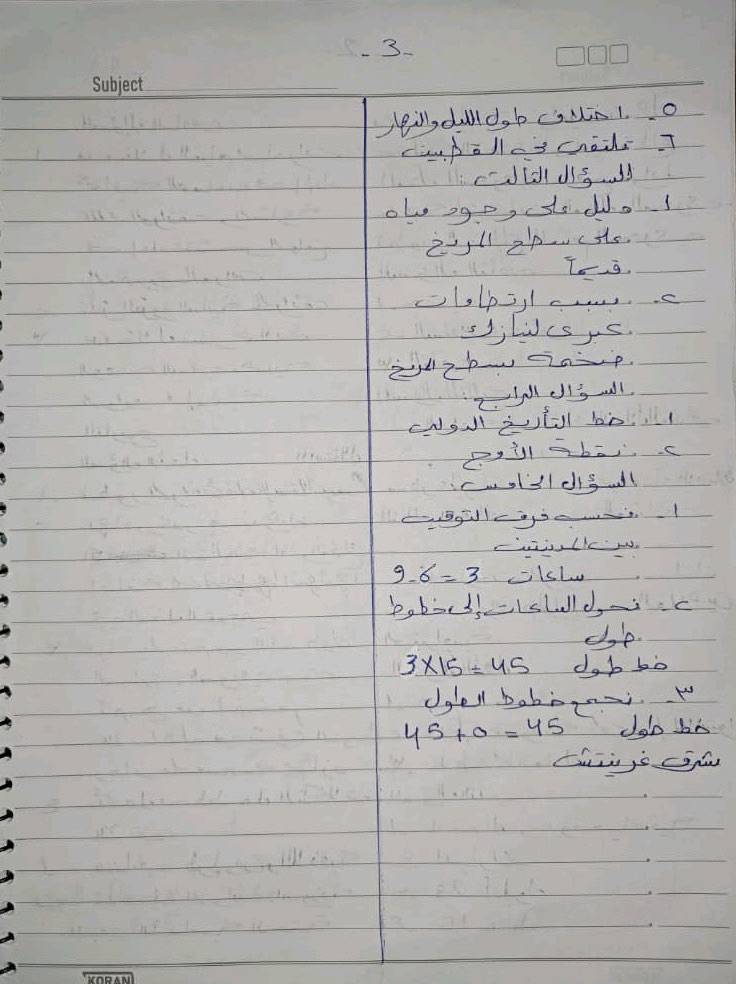 -3-
Subject
٥- اختلاف طول الليل والنهار
٦- تلتقي في القطبين
السؤال الثالث:
١- دليل على وجود مياه
على سطح المريخ
قديماً
٢- بسبب ارتطامات
كبرى لنيازك
ضخمة بسطح المريخ
السؤال الرابع:
١- خط التأريخ الدولي
٢- نقطة الأوج
السؤال الخامس:
١- نحسب فرق التوقيت
بين المدينتين
9-6=3 ساعات
٢- نحول الساعات إلى خطوط
طول
3×15=45 خط طول
٣- نجمع خطوط الطول
45+0=45 خط طول
شرق غرينتش
KORAN